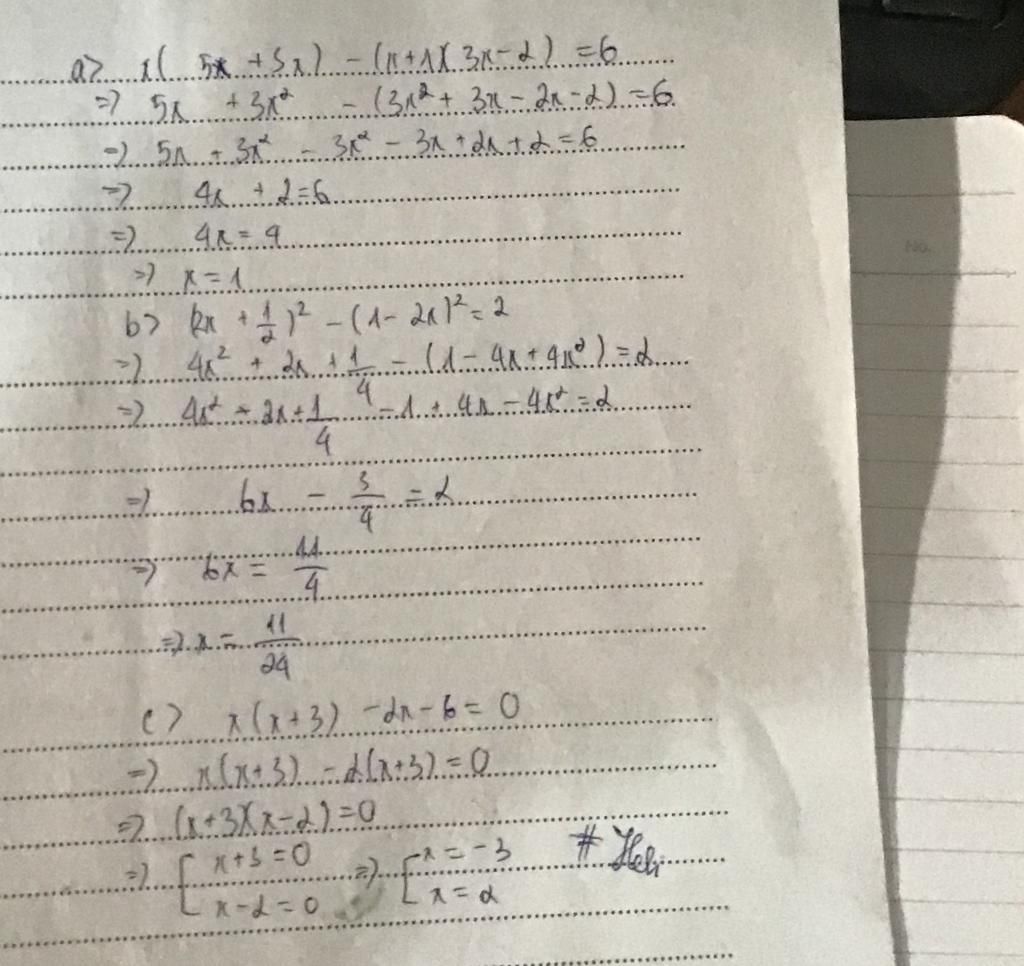 a> x( 5x + 3x) - (x+1)(3x-2) = 6
=> 5x + 3x² - (3x² + 3x - 2x - 2) = 6
=> 5x + 3x² - 3x² - 3x + 2x + 2 = 6
=> 4x + 2 = 6
=> 4x = 4
=> x = 1
b> (2x + 1/2)² - (1 - 2x)² = 2
=> 4x² + 2x + 1/4 - (1 - 4x + 4x²) = 2
=> 4x² + 2x + 1/4 - 1 + 4x - 4x² = 2
=> 6x - 3/4 = 2
=> 6x = 11/4
=> x = 11/24
c> x(x+3) - 2x - 6 = 0
=> x(x+3) - 2(x+3) = 0
=> (x+3)(x-2) = 0
=> [ x+3 = 0 => [ x = -3 # Heli
x-2 = 0 x = 2
No.